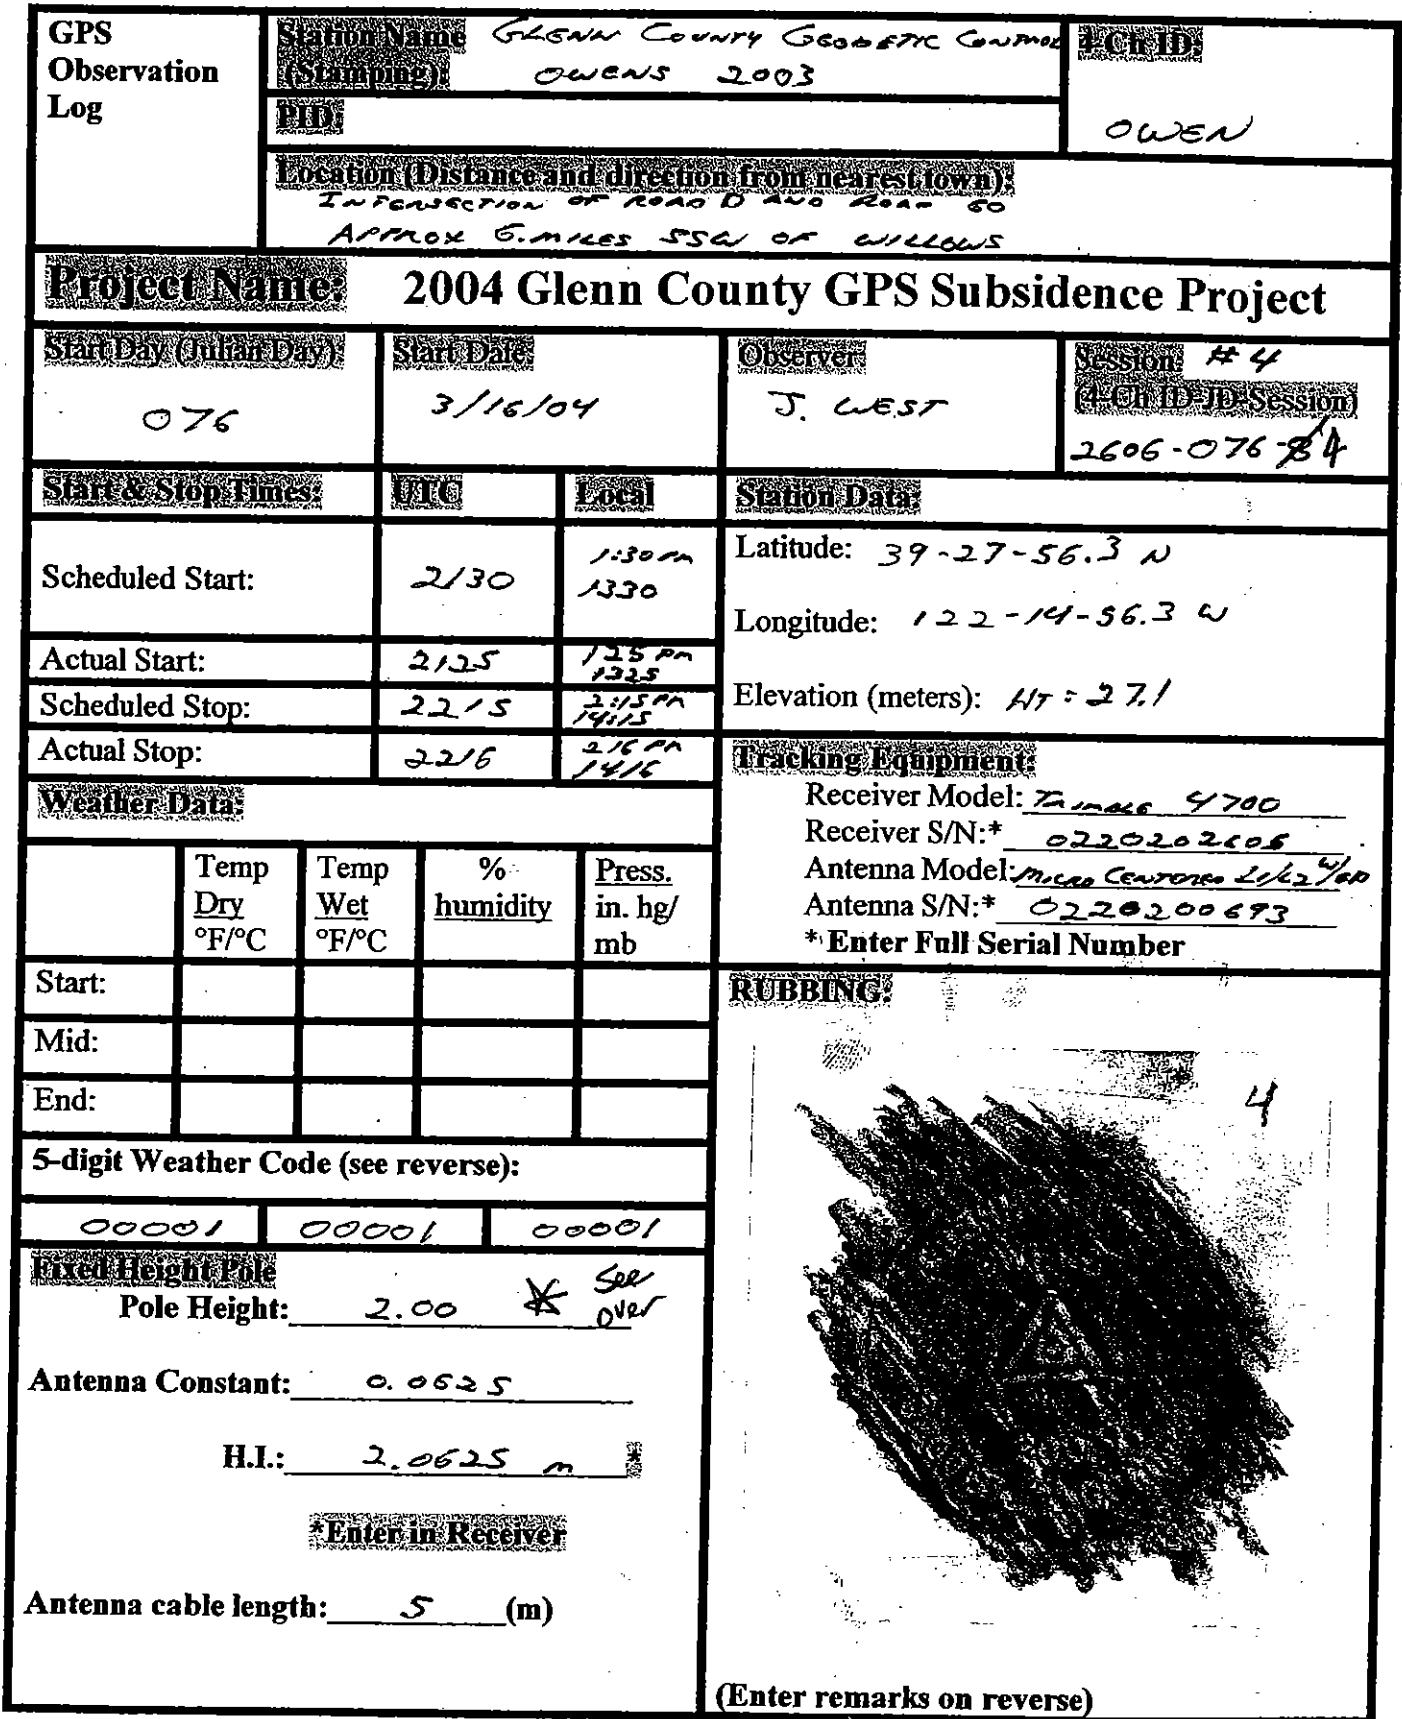 GPS
Observation
Log
Station Name GLENN COUNTY GEODETIC CONTROL
(Stamping): OWENS 2003
4-Ch ID:
OWEN
PID:
Location (Distance and direction from nearest town):
INTERSECTION OF ROAD D AND ROAD 60
APPROX 5.MILES SSW OF WILLOWS
Project Name: 2004 Glenn County GPS Subsidence Project
Start Day (Julian Day):
076
Start Date:
3/16/04
Observer:
J. WEST
Session: # 4
(4-Ch ID-JD-Session)
2606-076-4
Start & Stop Times: UTC Local
Scheduled Start: 2130 1:30 PM
1330
Actual Start: 2125 125 PM
1325
Scheduled Stop: 2215 2:15 PM
14:15
Actual Stop: 2216 216 PM
1416
Station Data:
Latitude: 39-27-56.3 N
Longitude: 122-14-56.3 W
Elevation (meters): HT = 27.1
Tracking Equipment:
Receiver Model: TRIMBLE 4700
Receiver S/N:* 0220202606
Antenna Model: MICRO CENTERED L1/L2 W/GP
Antenna S/N:* 0220200693
* Enter Full Serial Number
Weather Data:
Temp Dry °F/°C
Temp Wet °F/°C
% humidity
Press. in. hg/ mb
Start:
Mid:
End:
5-digit Weather Code (see reverse):
00001 00001 00001
Fixed Height Pole
Pole Height: 2.00 * See
over
Antenna Constant: 0.0625
H.I.: 2.0625 m *
*Enter in Receiver
Antenna cable length: 5 (m)
RUBBING:
4
(Enter remarks on reverse)